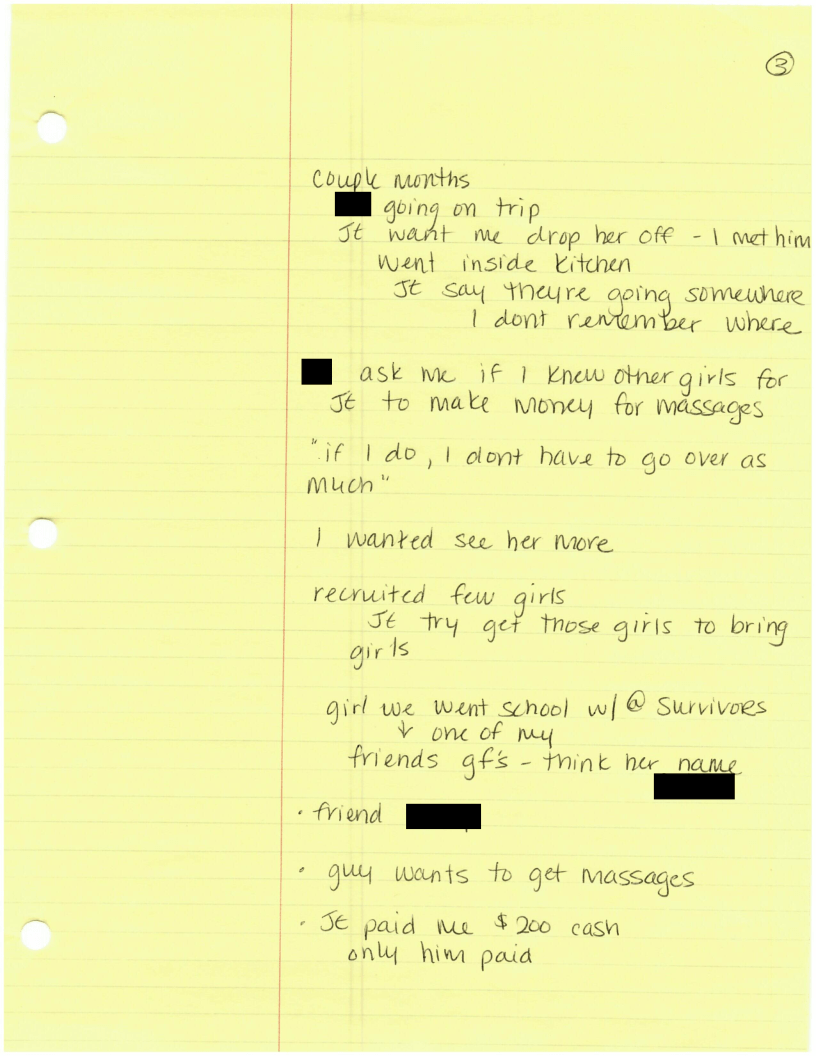 3
couple months
going on trip
JE want me drop her off - I met him
went inside kitchen
JE say theyre going somewhere
I dont remember where
ask me if I knew other girls for
JE to make money for massages
"if I do, I dont have to go over as
much"
I wanted see her more
recruited few girls
JE try get those girls to bring
girls
girl we went school w/ @ Survivors
↓ one of my
friends gf's - think her name
• friend
• guy wants to get massages
• JE paid me $200 cash
only him paid